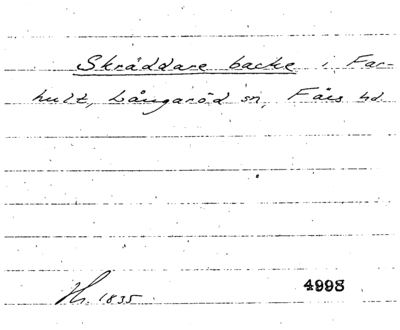 Skräddare backe i Far-
hult, Långaröd sn, Färs hd.
Hs. 1835 4998